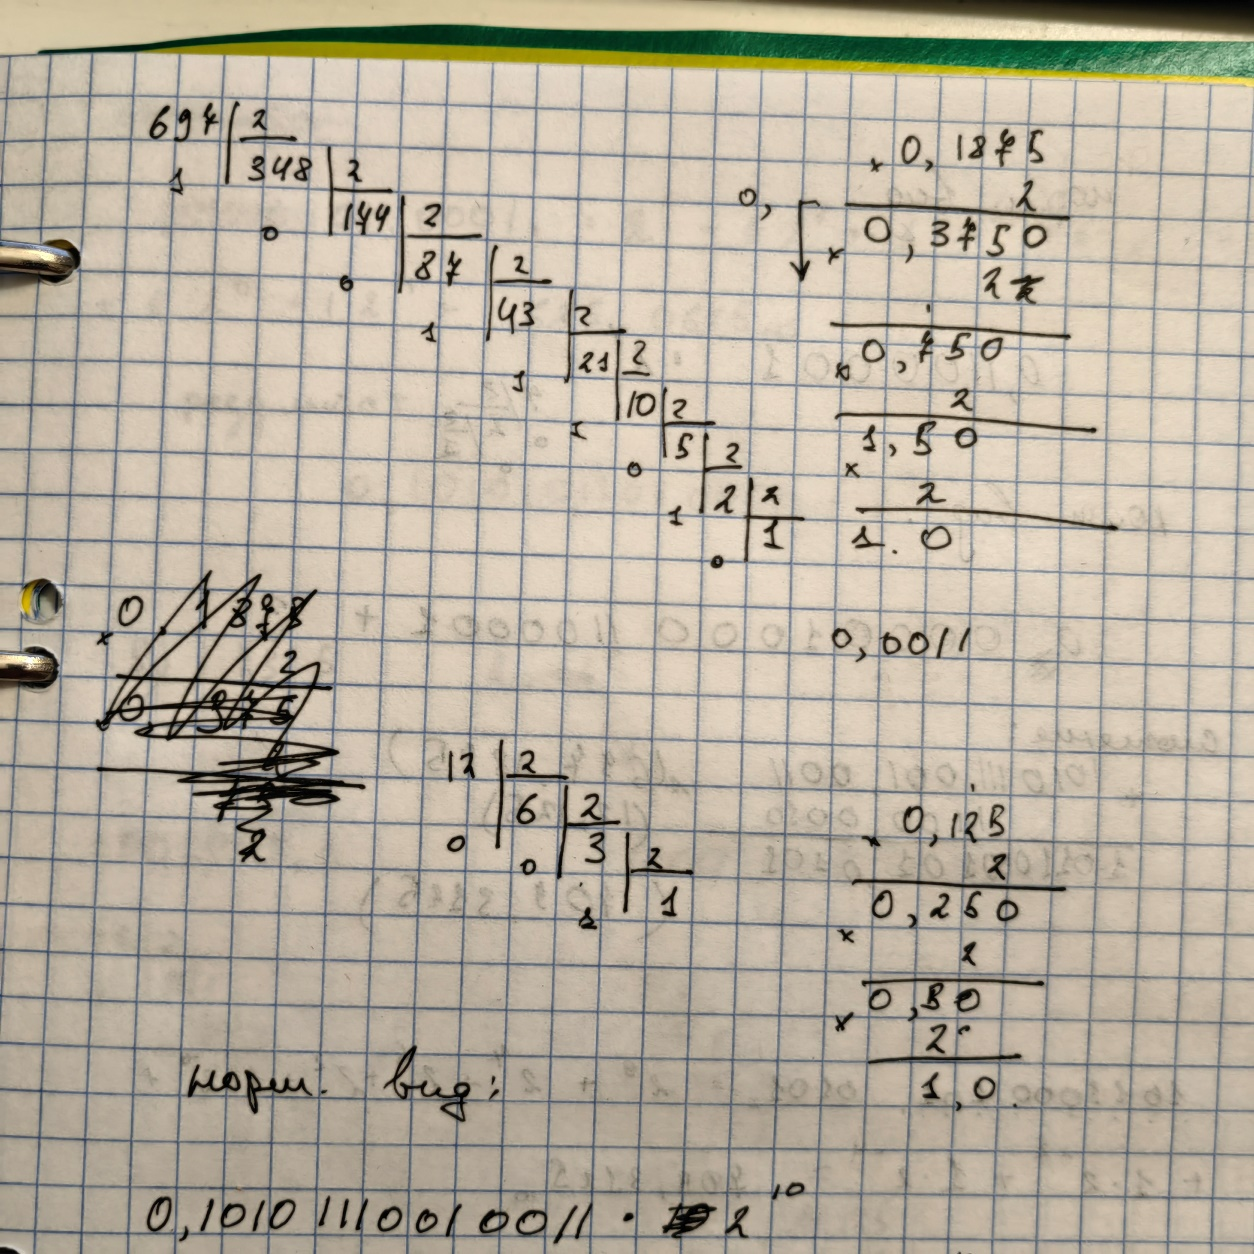 697 2
1 348 2
0 174 2
0 87 2
1 43 2
1 21 2
1 10 2
0 5 2
1 2 2
0 1
0,
× 0,1875
2
× 0,3750
2
× 0,750
2
× 1,50
2
1.0
0,0011
12 2
0 6 2
0 3 2
1 1
× 0,125
2
× 0,250
2
× 0,50
2
1,0
норм. вид:
0,10101110010011 · 2^10